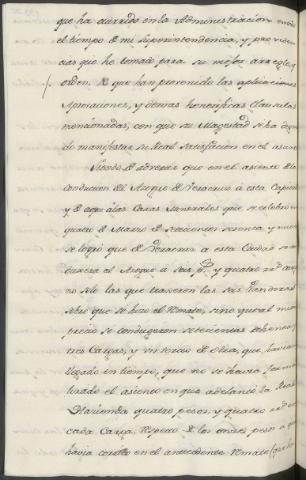 que ha ocurrido en la Administracion en el
el tiempo de mi Superintendencia, y providen
cias que he tomado para su mejor arreglo, y
orden. De que han provenido las aplicaciones
Aprovaciones, y demas honorificas clausulas
mencionadas, con que su Magestad se ha dig
de manifestar su Real Satisfaccion en el asunto
Siendo de advertir que en el asiento de la
conducion del Azogue de Veracruz a esta Capital
y de aqui a las Casas Minerales que se celebro en
quatro de Marzo de setecientos sesenta y nueve
se logró que de Veracruz a esta Ciudad se con
duxera el Azogue a seis p.s y quatro r.s
no solo las que traxeron las
sobre que se hizo el Remate, sino que al mismo
precio se conduxeron setecientas ochenta y
tres Cargas, y un tercio de otra, que havian
llegado en tiempo, que no se havia forma
lizado el asiento en que adelantó la Real
Hacienda quatro pesos, y quatro r.s en
cada Carga, respecto de los onze pesos a que
havia corrido en el antecedente Remate